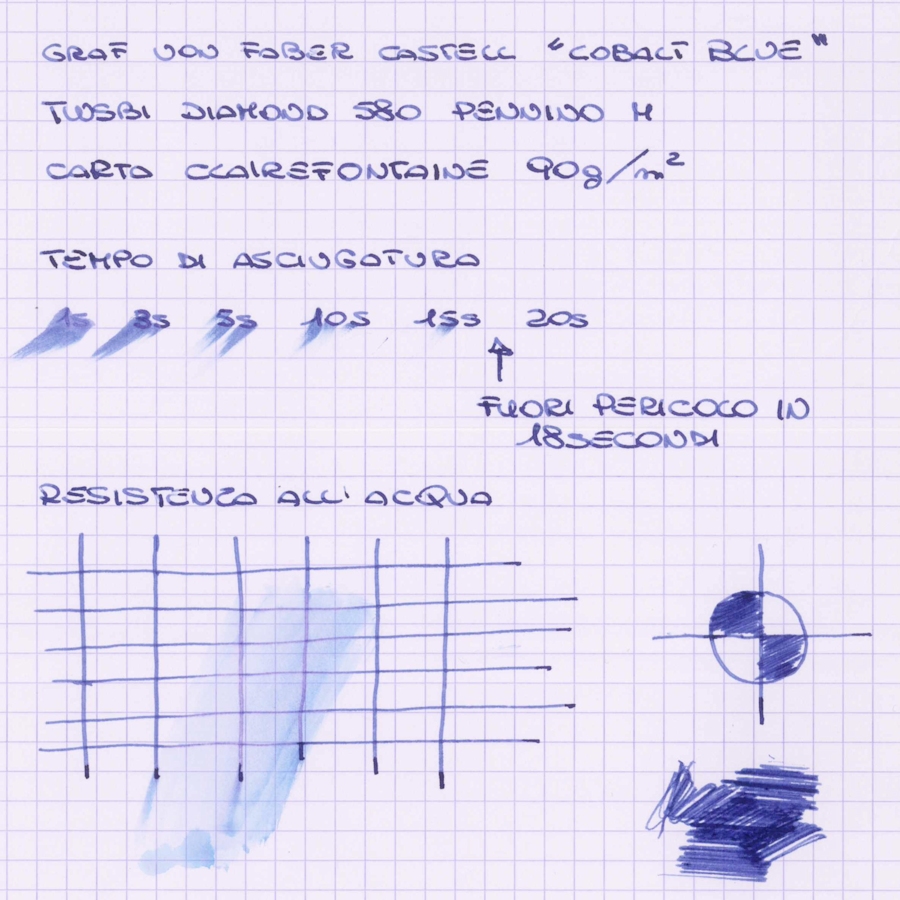 GRAF VON FABER CASTELL "COBALT BLUE"
TWSBI DIAMOND 580 PENNINO M
CARTA CLAIREFONTAINE 90g/m²
TEMPO DI ASCIUGATURA
1s 3s 5s 10s 15s 20s
FUORI PERICOLO IN
18SECONDI
RESISTENZA ALL' ACQUA